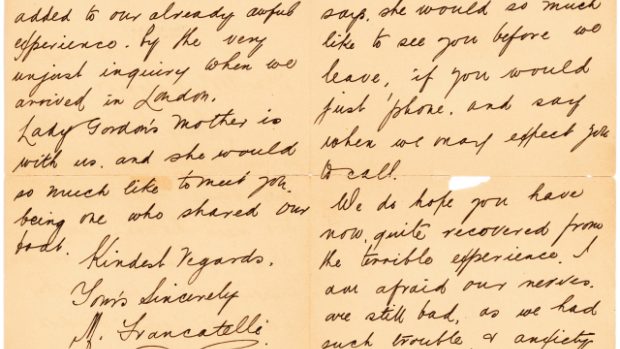 says, she would so much
like to see you before we
leave, if you would
just 'phone. and say
when we may expect you
to call.
We do hope you have
now, quite recovered from
the terrible experience. I
am afraid our nerves.
are still bad, as we had
such trouble & anxiety
added to our already awful
experience. by the very
unjust inquiry when we
arrived in London.
Lady Gordon's Mother is
with us. and she would
so much like to meet you.
being one who shared our
boat.
Kindest Regards.
Your's Sincerely
M. Francatelli